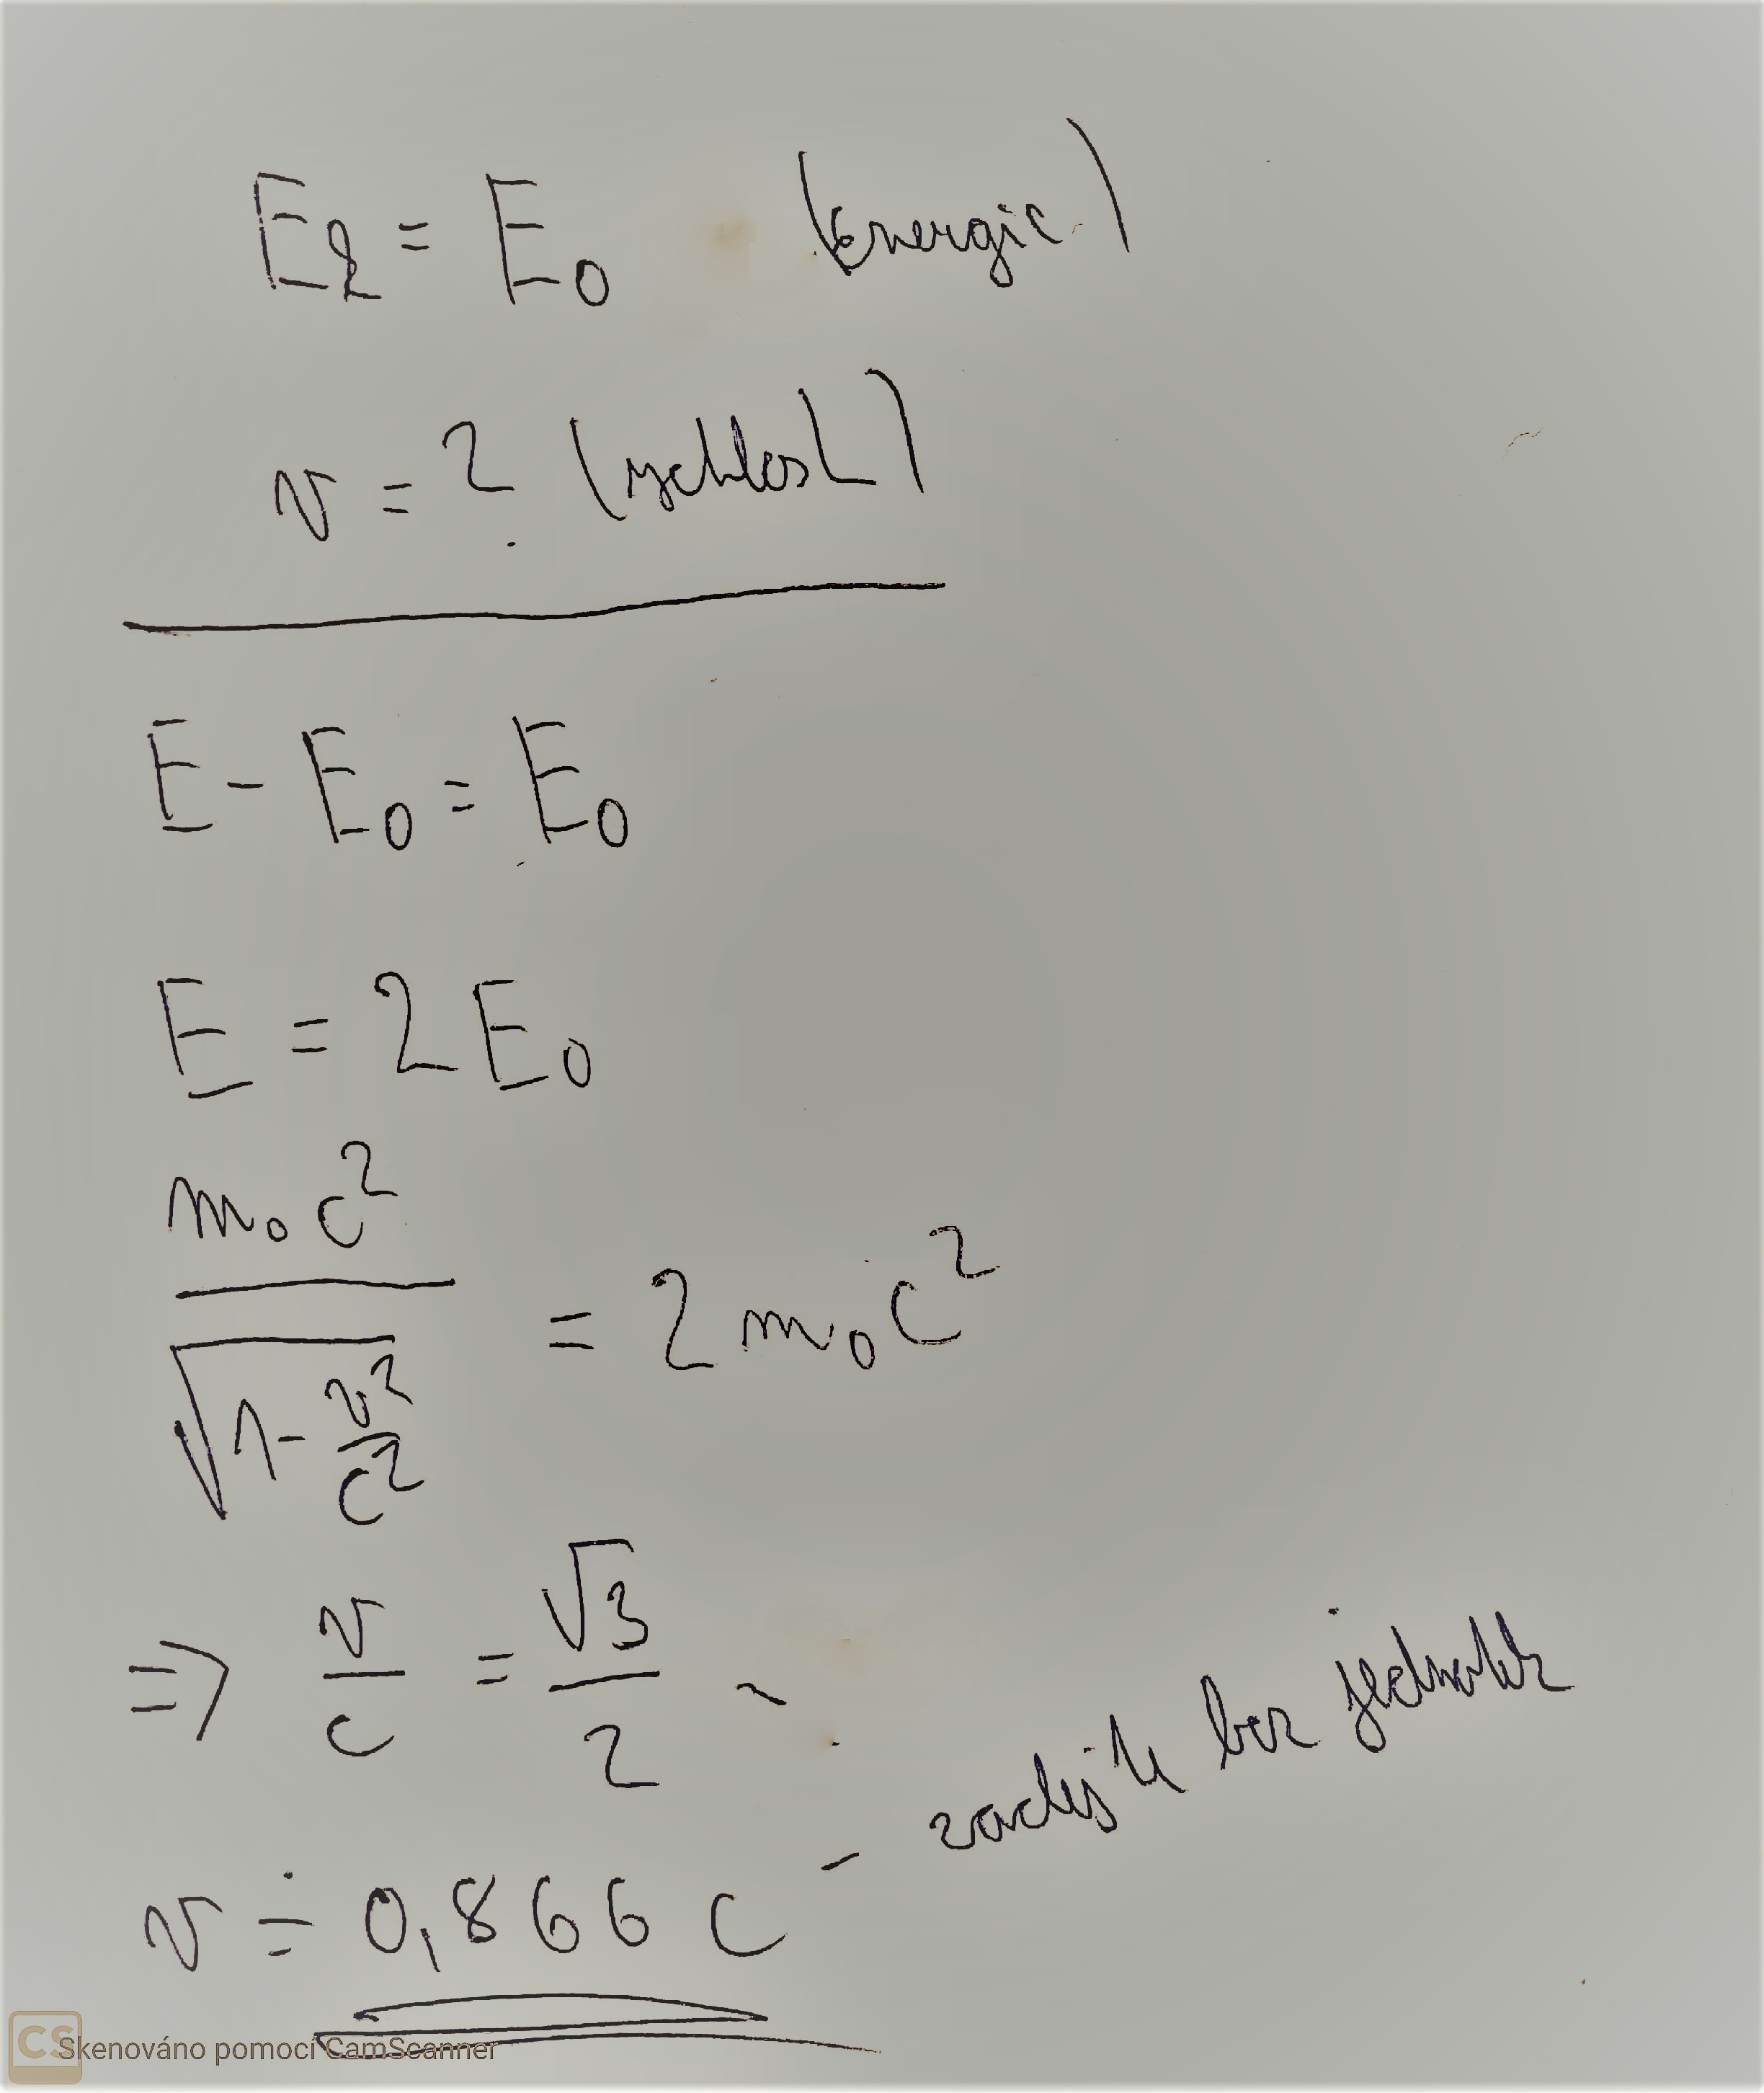 E_k = E_0 (energie)
v = ? (rychlost)
E - E_0 = E_0
E = 2 E_0
m_0 c^2 / √(1 - v^2/c^2) = 2 m_0 c^2
=> v/c = √3/2
v ≐ 0,866 c - zadejte bez jednotek
CS Skenováno pomocí CamScanner